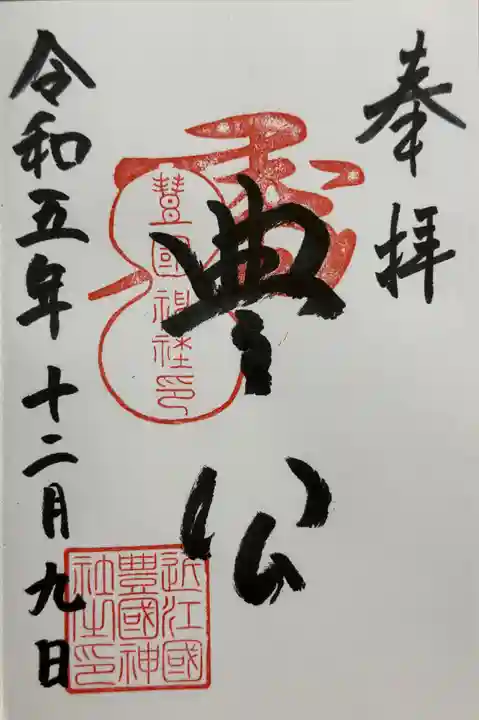 奉拝
豊公
豊國神社印
近江國
豊國神
社之印
令和五年十二月九日